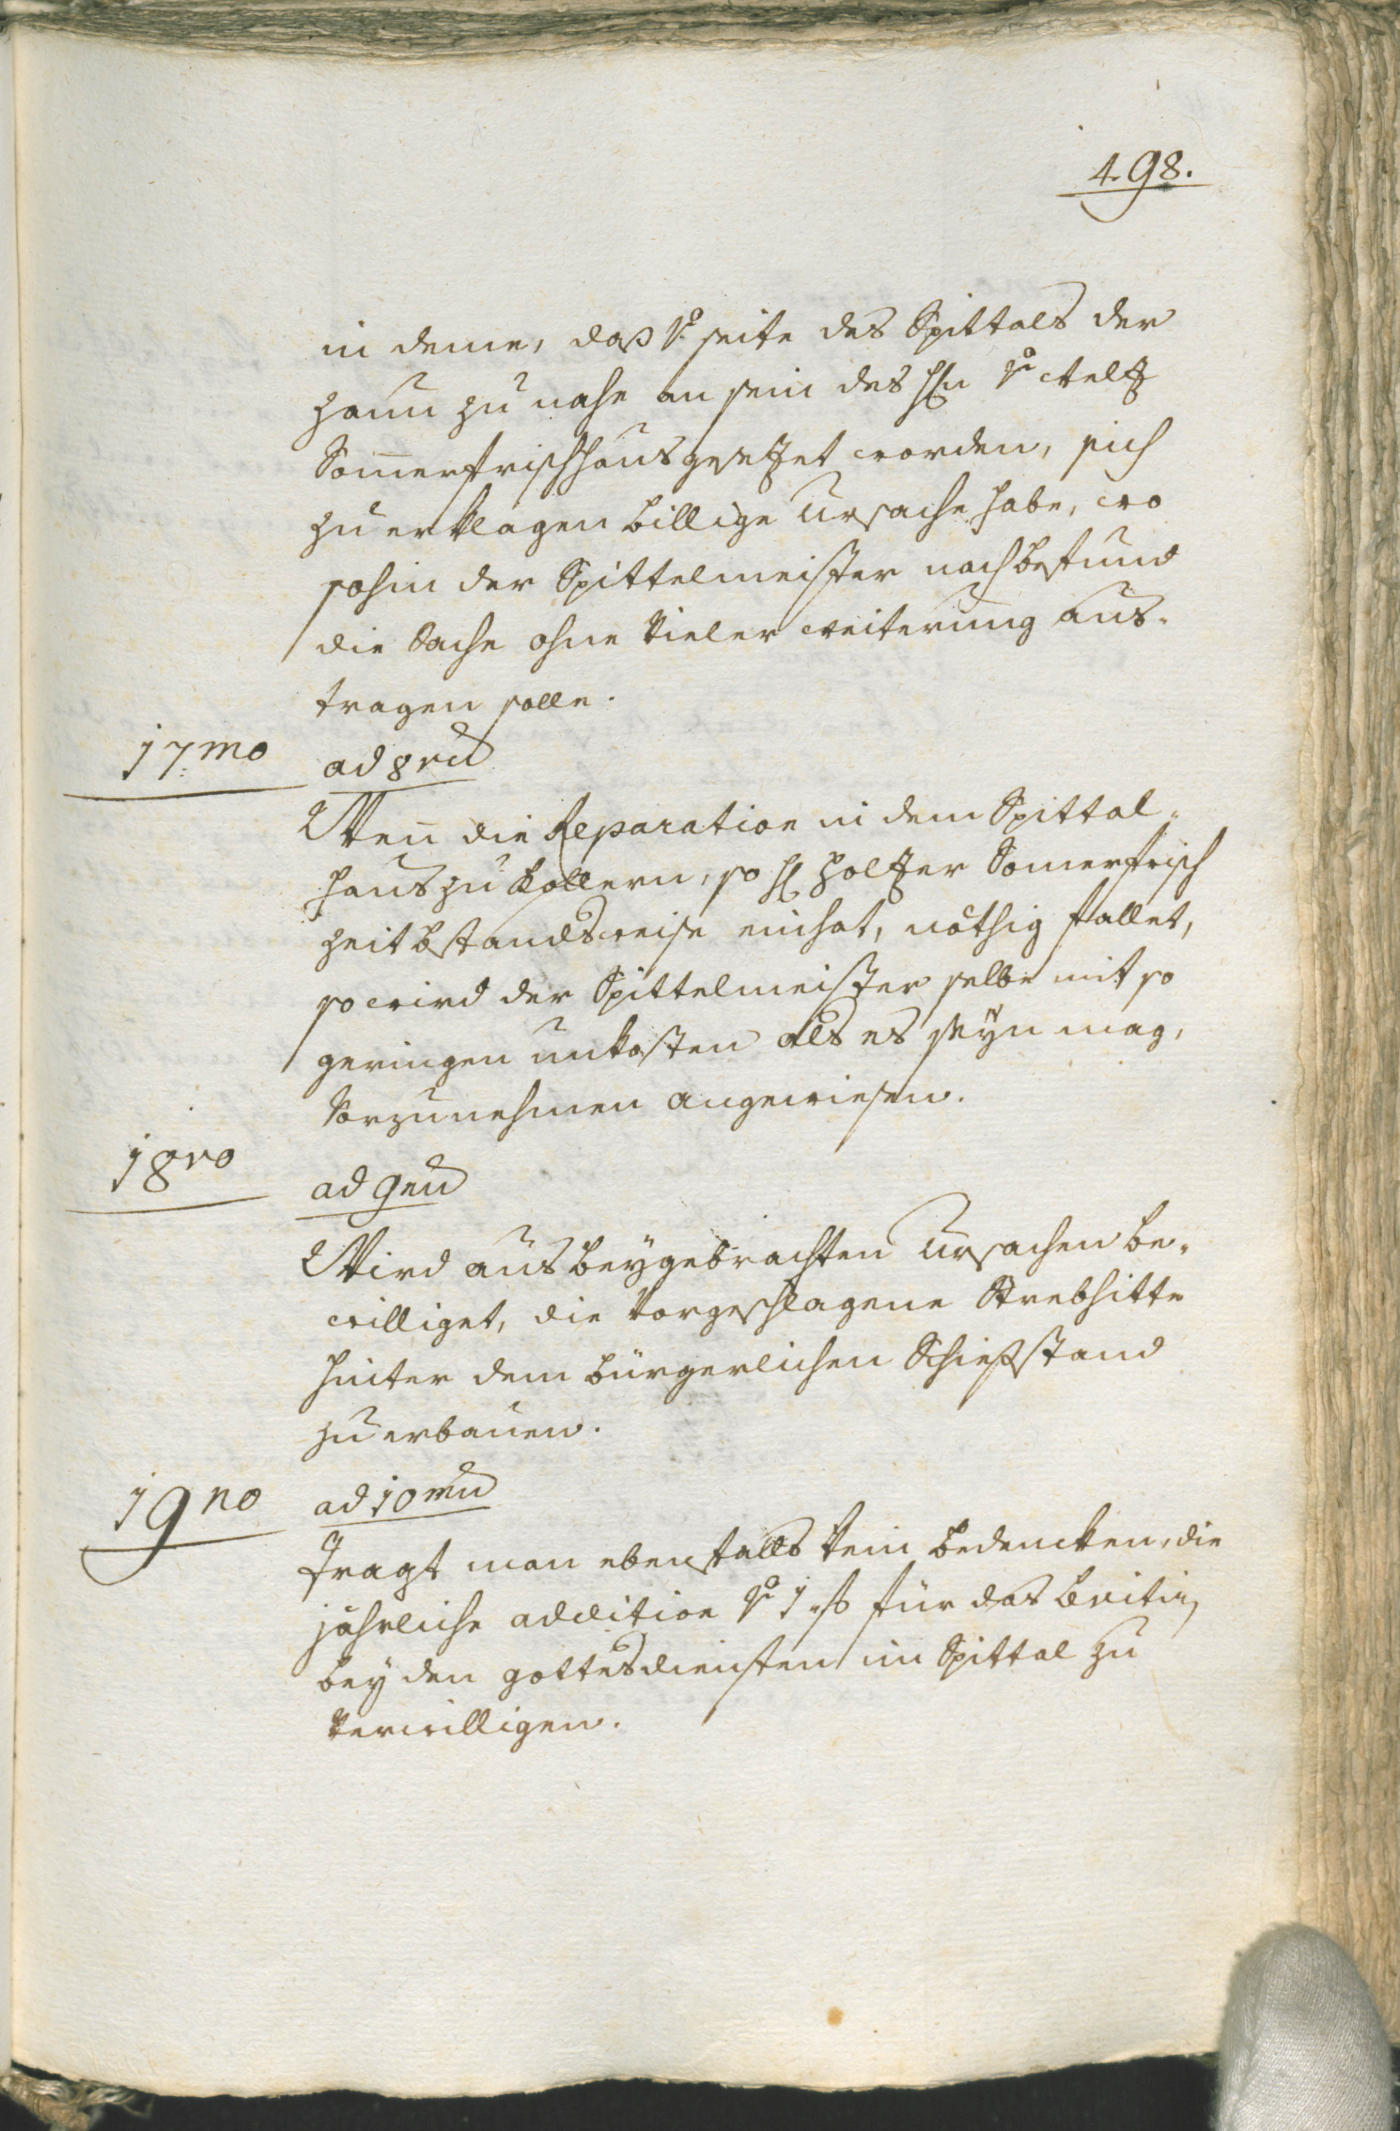 498.
in deme, daß vo seite des Spittals der
Zaun zu nahe an sein des H̃n vo Aeltz
Som̄erfrischhaus gesetzet worden, sich
zu erklagen billige Ursache habe, wo
sohin der Spittelmeister nach befund
die Sache ohne vieler weiterung aus-
tragen solle.
17mo
ad 8vu̅
Wen̄ die Reparation in dem Spittal-
haus zu Kollern, so H̃ Holtzer Som̄erfrisch
zeit bstandsweise einhat, nöthig fallet,
so wird der Spittelmeister selbe mit so
geringen unkosten als es seyn mag,
vorzunehmen angewiesen.
18vo
ad 9nu̅
Wird aus beygebrachten Ursachen be-
williget, die vorgeschlagene Strebhitte
hinter dem bürgerlichen Schießstand
zu erbauen.
19no
ad 10mu̅
Tragt man ebenfalls kein bedencken, die
jährliche addition vo 1 f für das
bey den gottesdiensten im Spittal zu
verwilligen.